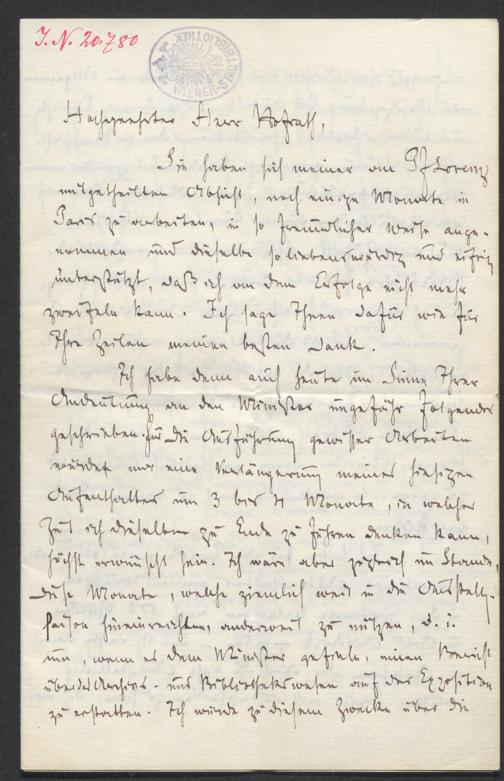 I. N. 20.780
WIENER STADTBIBLIOTHEK
Hochgeehrter Herr Hofrath,
Sie haben sich meiner an Pf Lorenz
mitgetheilten Absicht, noch einige Monate in
Paris zu arbeiten, in so freundlicher Weise ange-
nommen und dieselbe so liebenswürdig und eifrig
unterstützt, daß ich an dem Erfolge nicht mehr
zweifeln kann. Ich sage Ihnen dafür wie für
Ihre Zeilen meinen besten Dank.
Ich habe denn auch heute im Sinne Ihrer
Andeutung an den Minister ungefähr Folgendes
geschrieben. Für die Ausführung gewisser Arbeiten
würde mir eine Verlängerung meines hiesigen
Aufenthaltes um 3 bis 4 Monate, in welcher
Zeit ich dieselben zu Ende zu führen denken kann,
höchst erwünscht sein. Ich wäre aber zugleich im Stande,
diese Monate, welche ziemlich weit in die Ausstellgs-
saison hineinreichten, anderweit zu nützen, d. i.
um, wenn es dem Minister gefiele, einen Bericht
über das Archivs- und Bibliothekswesen auf der Exposition
zu erstatten. Ich würde zu diesem Zwecke über die